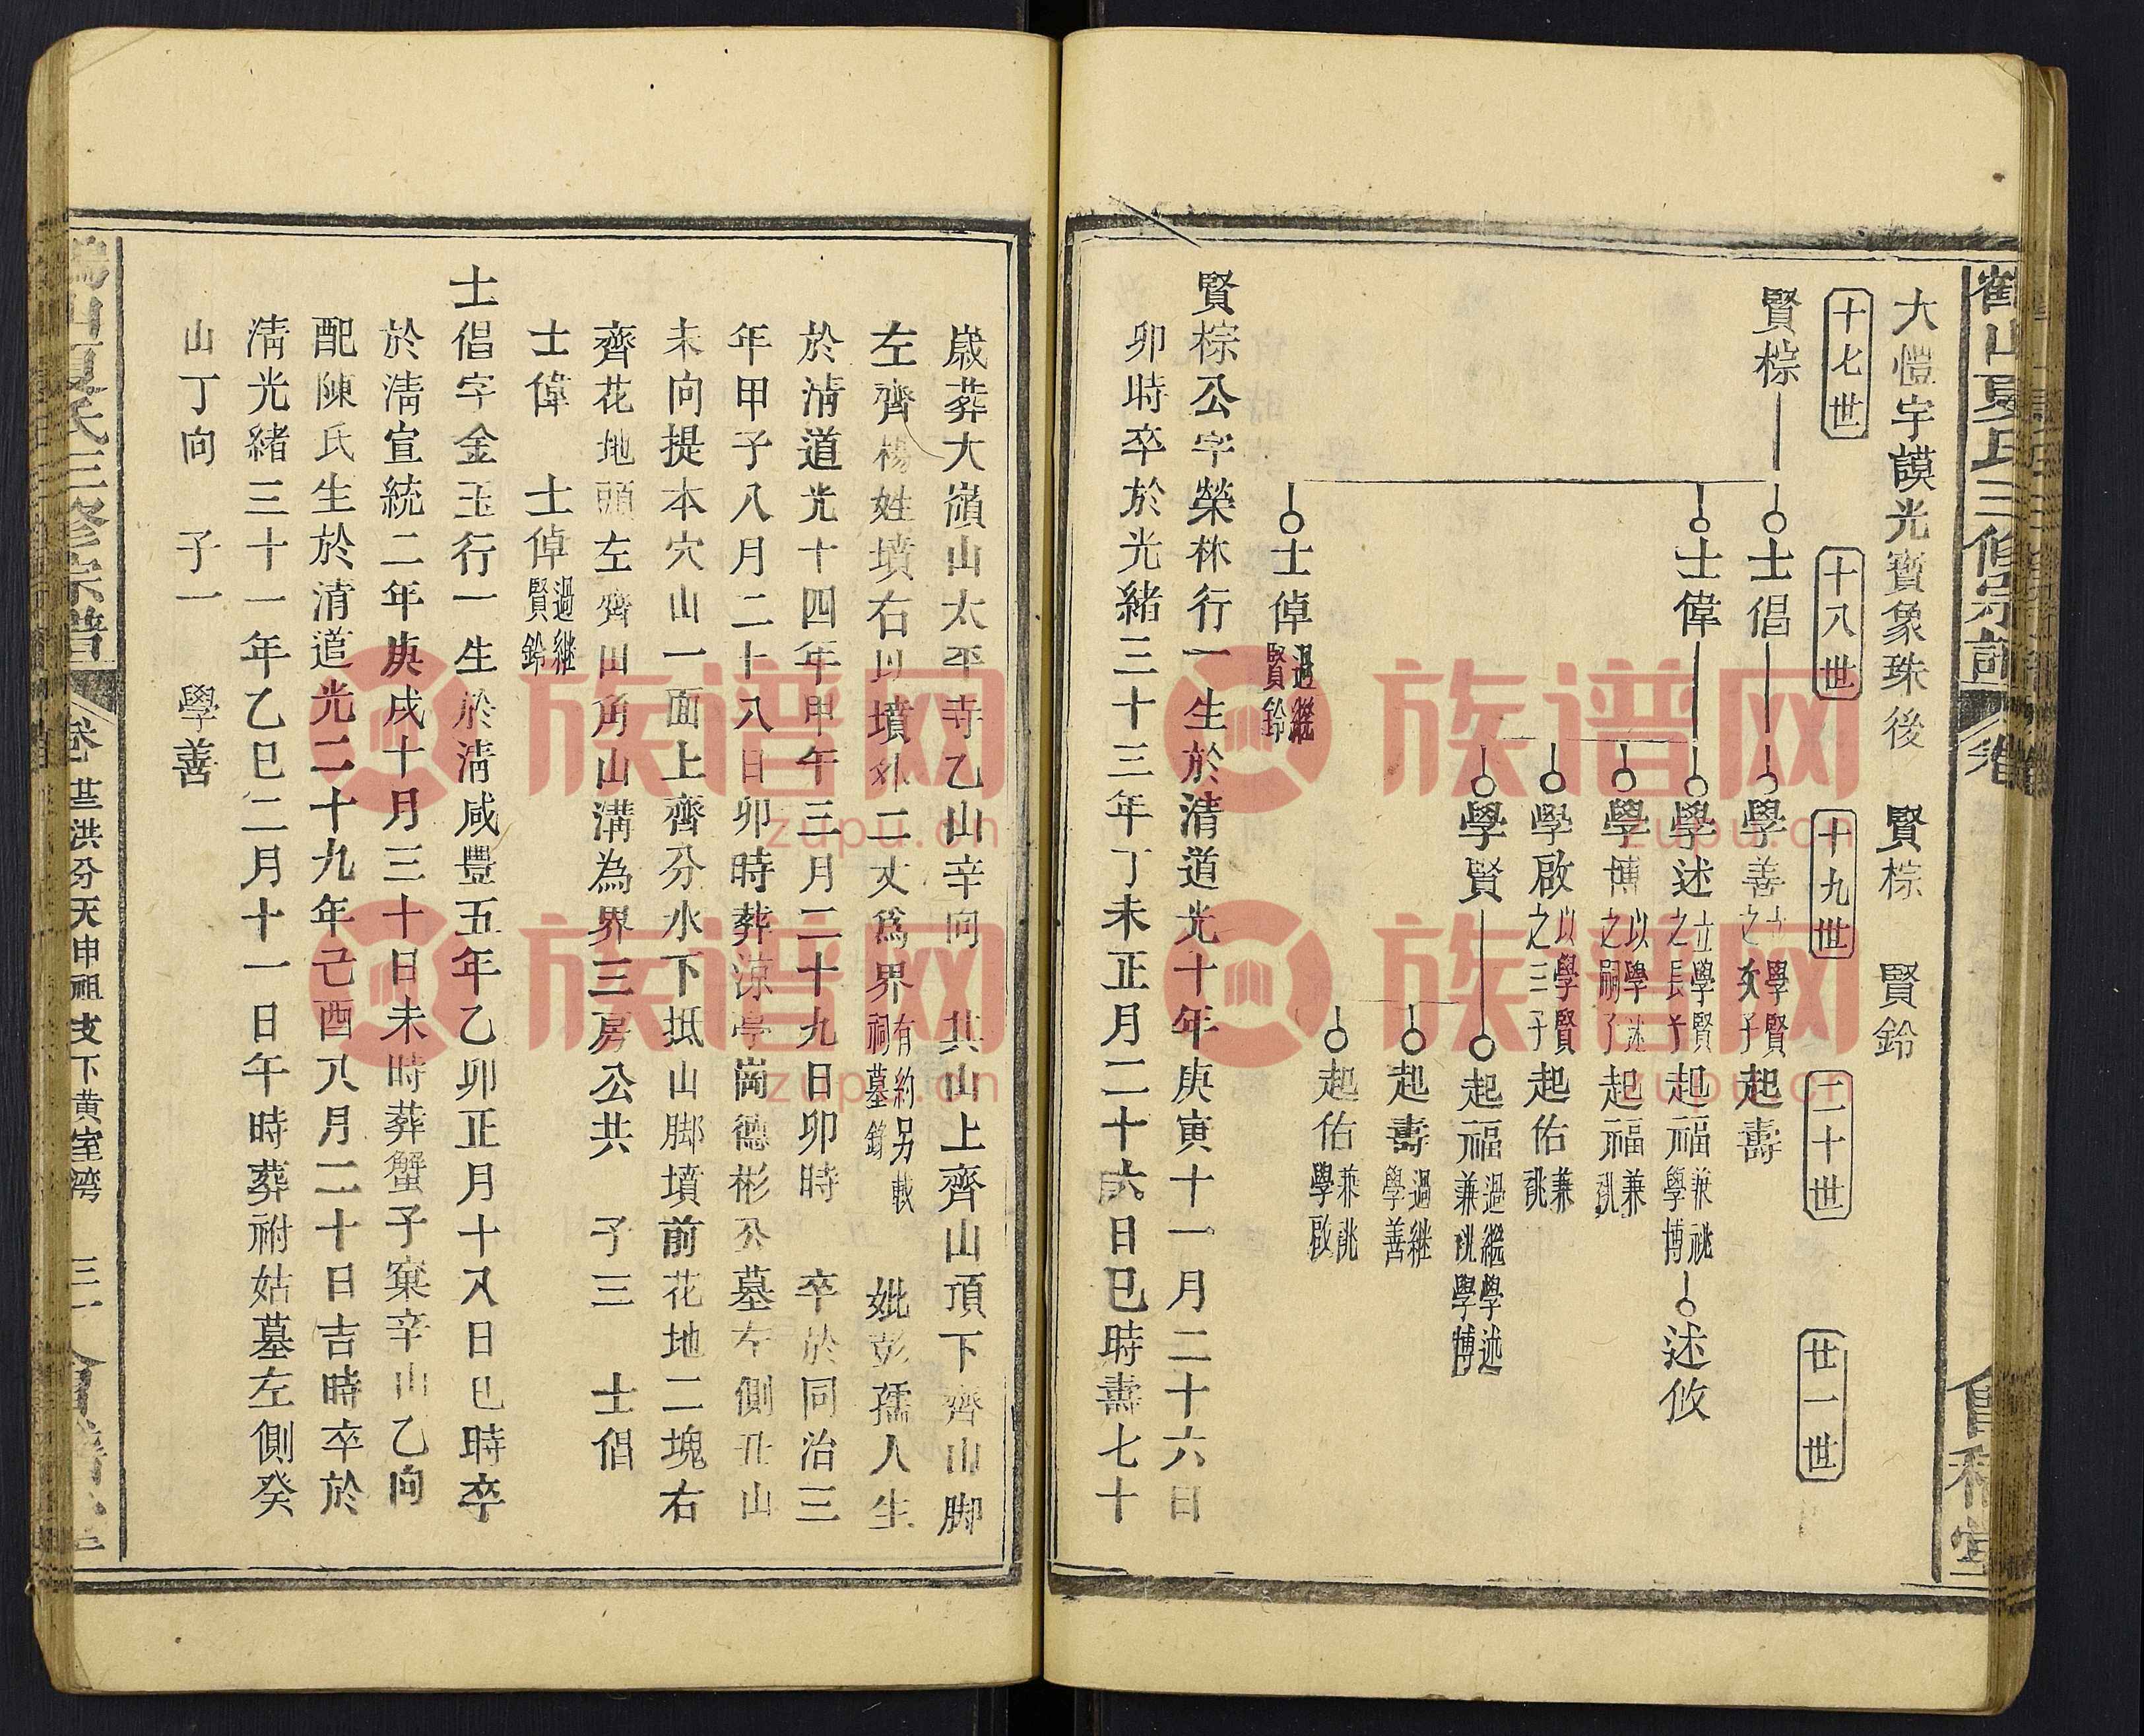 大愷字謨光寳象珠後 賢棕 賢鈴
十七世
十八世
十九世
二十世
廿一世
賢棕
士倡
學善
之次子
學賢
起壽
士偉
學述
立學賢
之長子
起福
兼祧
學博
述攸
學博
以學述
之嗣子
起福
兼祧
學啟
以學賢
之三子
起佑
兼祧
學賢
起福
過繼學述
兼祧學博
起壽
過継
學善
起佑
兼祧
學啟
士倬
過繼
賢鈴
賢棕公字榮林行一生於清道光十年庚寅十一月二十六日
卯時卒於光緒三十三年丁未正月二十六日巳時壽七十
歲葬大嶺山太平寺乙山辛向 共山上齊山頂下齊山脚
左齊楊姓墳右以墳外二丈爲界有約另載祠墓銘 妣彭孺人生
於清道光十四年甲午三月二十九日卯時 卒於同治三
年甲子八月二十八日卯時葬涼亭崗德彬公墓左側丑山
未向提本穴山一面上齊分水下抵山脚墳前花地二塊右
齊花地頭左齊田角山溝為界三房公共 子三 士倡
士偉 士倬過継賢鈴
士倡字金玉行一生於清咸豐五年乙卯正月十八日巳時卒
於清宣統二年庚戌十月三十日未時葬蟹子窠辛山乙向
配陳氏生於清道光二十九年己酉八月二十日吉時卒於
清光緒三十一年乙巳二月十一日午時葬祔姑墓左側癸
山丁向 子一 學善
山夏氏三修宗譜 卷 世洪分天申祖支下黄室湾 三一
族谱网
zupu.cn
族谱网
zupu.cn
族谱网
zupu.cn
族谱网
zupu.cn